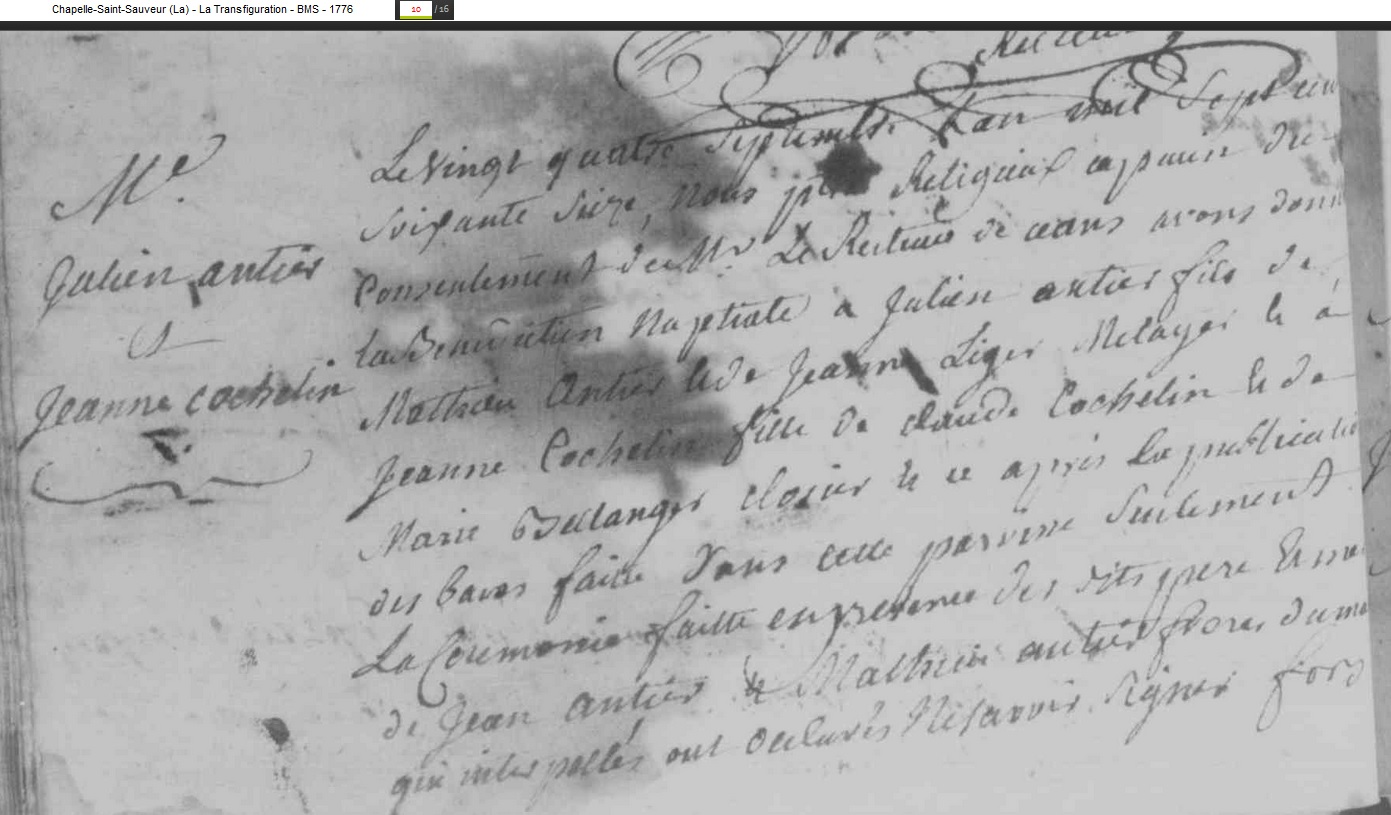 Chapelle-Saint-Sauveur (La) - La Transfiguration - BMS - 1776
10 / 16
Recteur
Mᵉ
Julien antier
&
Jeanne cochelin
Le vingt quatre Septembre L'an mil Sept cen
Soixante Sieze, Nous Religieux capucin du
Consentement de Mr Le Recteur de ceans avons donn
La Benediction Nuptiale a Julien antier fils de
Mathieu Antier & de Jeanne Liger Metayer & á
Jeanne Cochelin fille de claude Cochelin & de
Marie Bellanger closier & ce apres La publicatio
des bans faitte Dans cette paroisse Seulement
La Ceremonie faitte en presence des dits pere & me
de Jean antier & Mathieu antier freres du me
qui interpellés ont declarés Ne scavoir Signer fors